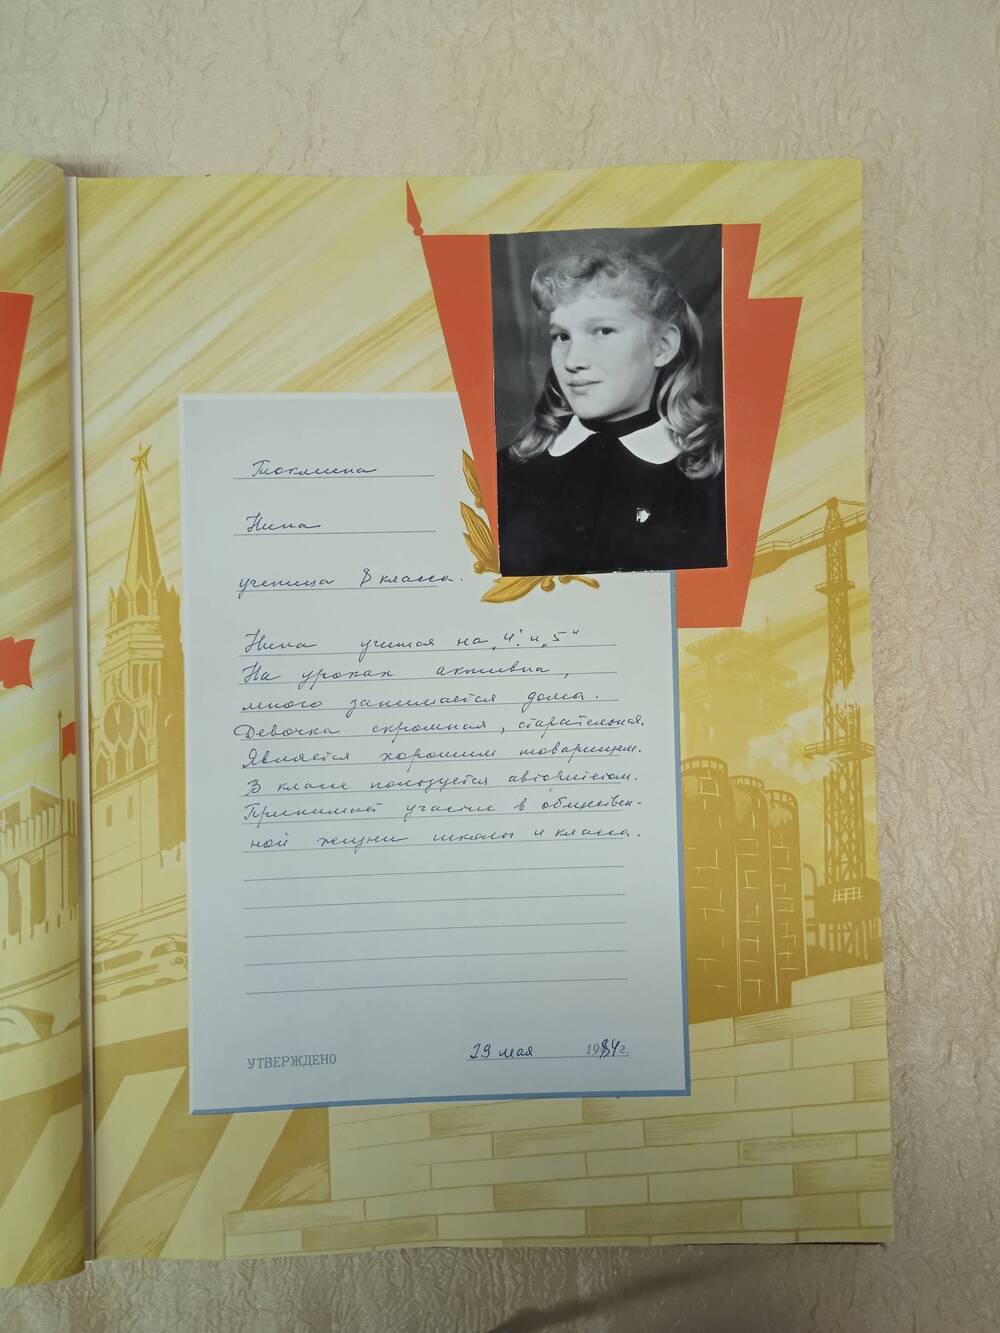 Токмина
Нина
ученица 8 класса.
Нина учится на „4" и „5"
На уроках активна,
много занимается дома.
Девочка скромная, старательная.
Является хорошим товарищем.
В классе пользуется авторитетом.
Принимает участие в обществен-
ной жизни школы и класса.
УТВЕРЖДЕНО 29 мая 1984 г.